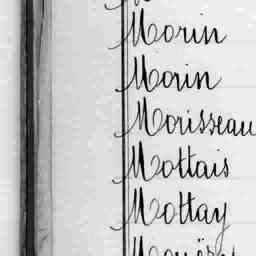 Morin
Morin
Morisseau
Mottais
Mottay